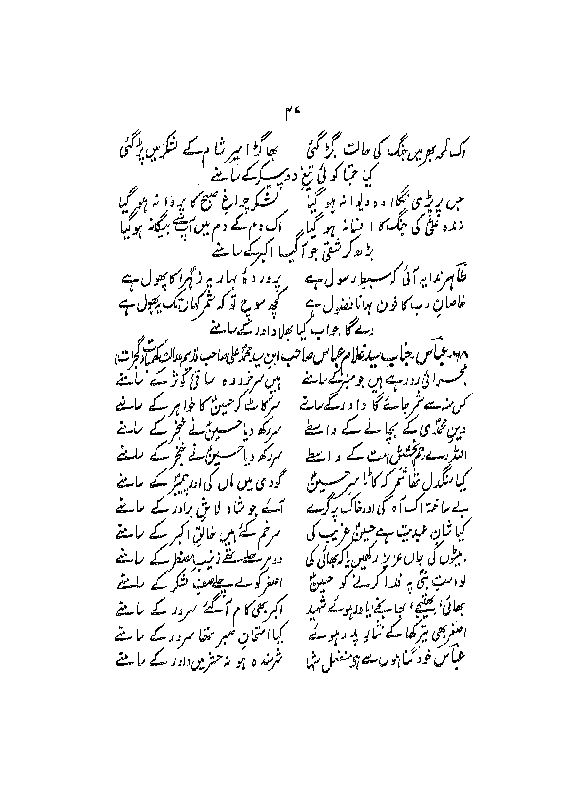 ۳۷
اک لمحہ بھر میں جنگ کی حالت بگڑ گئی بھاگڑ امیر شام کے لشکر میں پڑ گئی
کیا جتا کوئی تیغ دو پیکر کے سامنے
جس پر پڑی نگاہ وہ دیوانہ ہو گیا لشکر چراغ صبح کا پروانہ ہو گیا
زندہ علیؑ کی جنگ کا افسانہ ہو گیا اک دم کے دم میں اپنے بیگانہ ہو گیا
بڑھ کر شقی جو آ گیا اکبر کے سامنے
ظاہر ندا یہ آئی کہ سبط رسول ہے پروردۂ بہار زہراؑ کا پھول ہے
خاصان رب کا خون بہانا فضول ہے کچھ سوچ تو کہ شمر کہاں تک یہ بھول ہے
دے گا جواب کیا بھلا داور کے سامنے
۶۸۔ عباسؔ جناب سید غلام عباس صاحب ابن سید محمد علی صاحب گجرات
مجرائی رو رہے ہیں جو منبر کے سامنے ہیں سرخرو وہ ساقی کوثر کے سامنے
کس منہ سے شمر جائے گا داور کے سامنے سر کاٹ کر حسینؑ کا خواہر کے سامنے
دین محمدی کے بچانے کے واسطے سر رکھ دیا حسینؑ نے خنجر کے سامنے
اللہ رے بخشش امت کے واسطے سر رکھ دیا حسینؑ نے خنجر کے سامنے
کیا سنگدل تھا شمر کہ کاٹا سر حسینؑ گودی میں ماں کی اور پیمبر کے سامنے
بے ساختہ اک آہ کی اور خاک پر گرے آئے جو شاہ لاش برادر کے سامنے
کیا شان عبدیت ہے حسینؑ غریب کی سر خم کئے ہیں خالق اکبر کے سامنے
بیٹوں کی جاں عزیز رکھیں یا کہ بھائی کی دو مرحلے تھے زینب مضطر کے سامنے
لو امت نبی پہ فدا کرنے کو حسینؑ اصغر کو لے چلے صف لشکر کے سامنے
بھائی، بھتیجے، بھانجے، یاور ہوئے شہید اکبر بھی کام آ گئے سرور کے سامنے
اصغر بھی تیر کھا کے نثار پدر ہوئے کیا امتحان صبر تھا سرور کے سامنے
عباسؔ خود گناہوں سے ہے منفعل شہا شرمندہ ہو نہ حشر میں داور کے سامنے